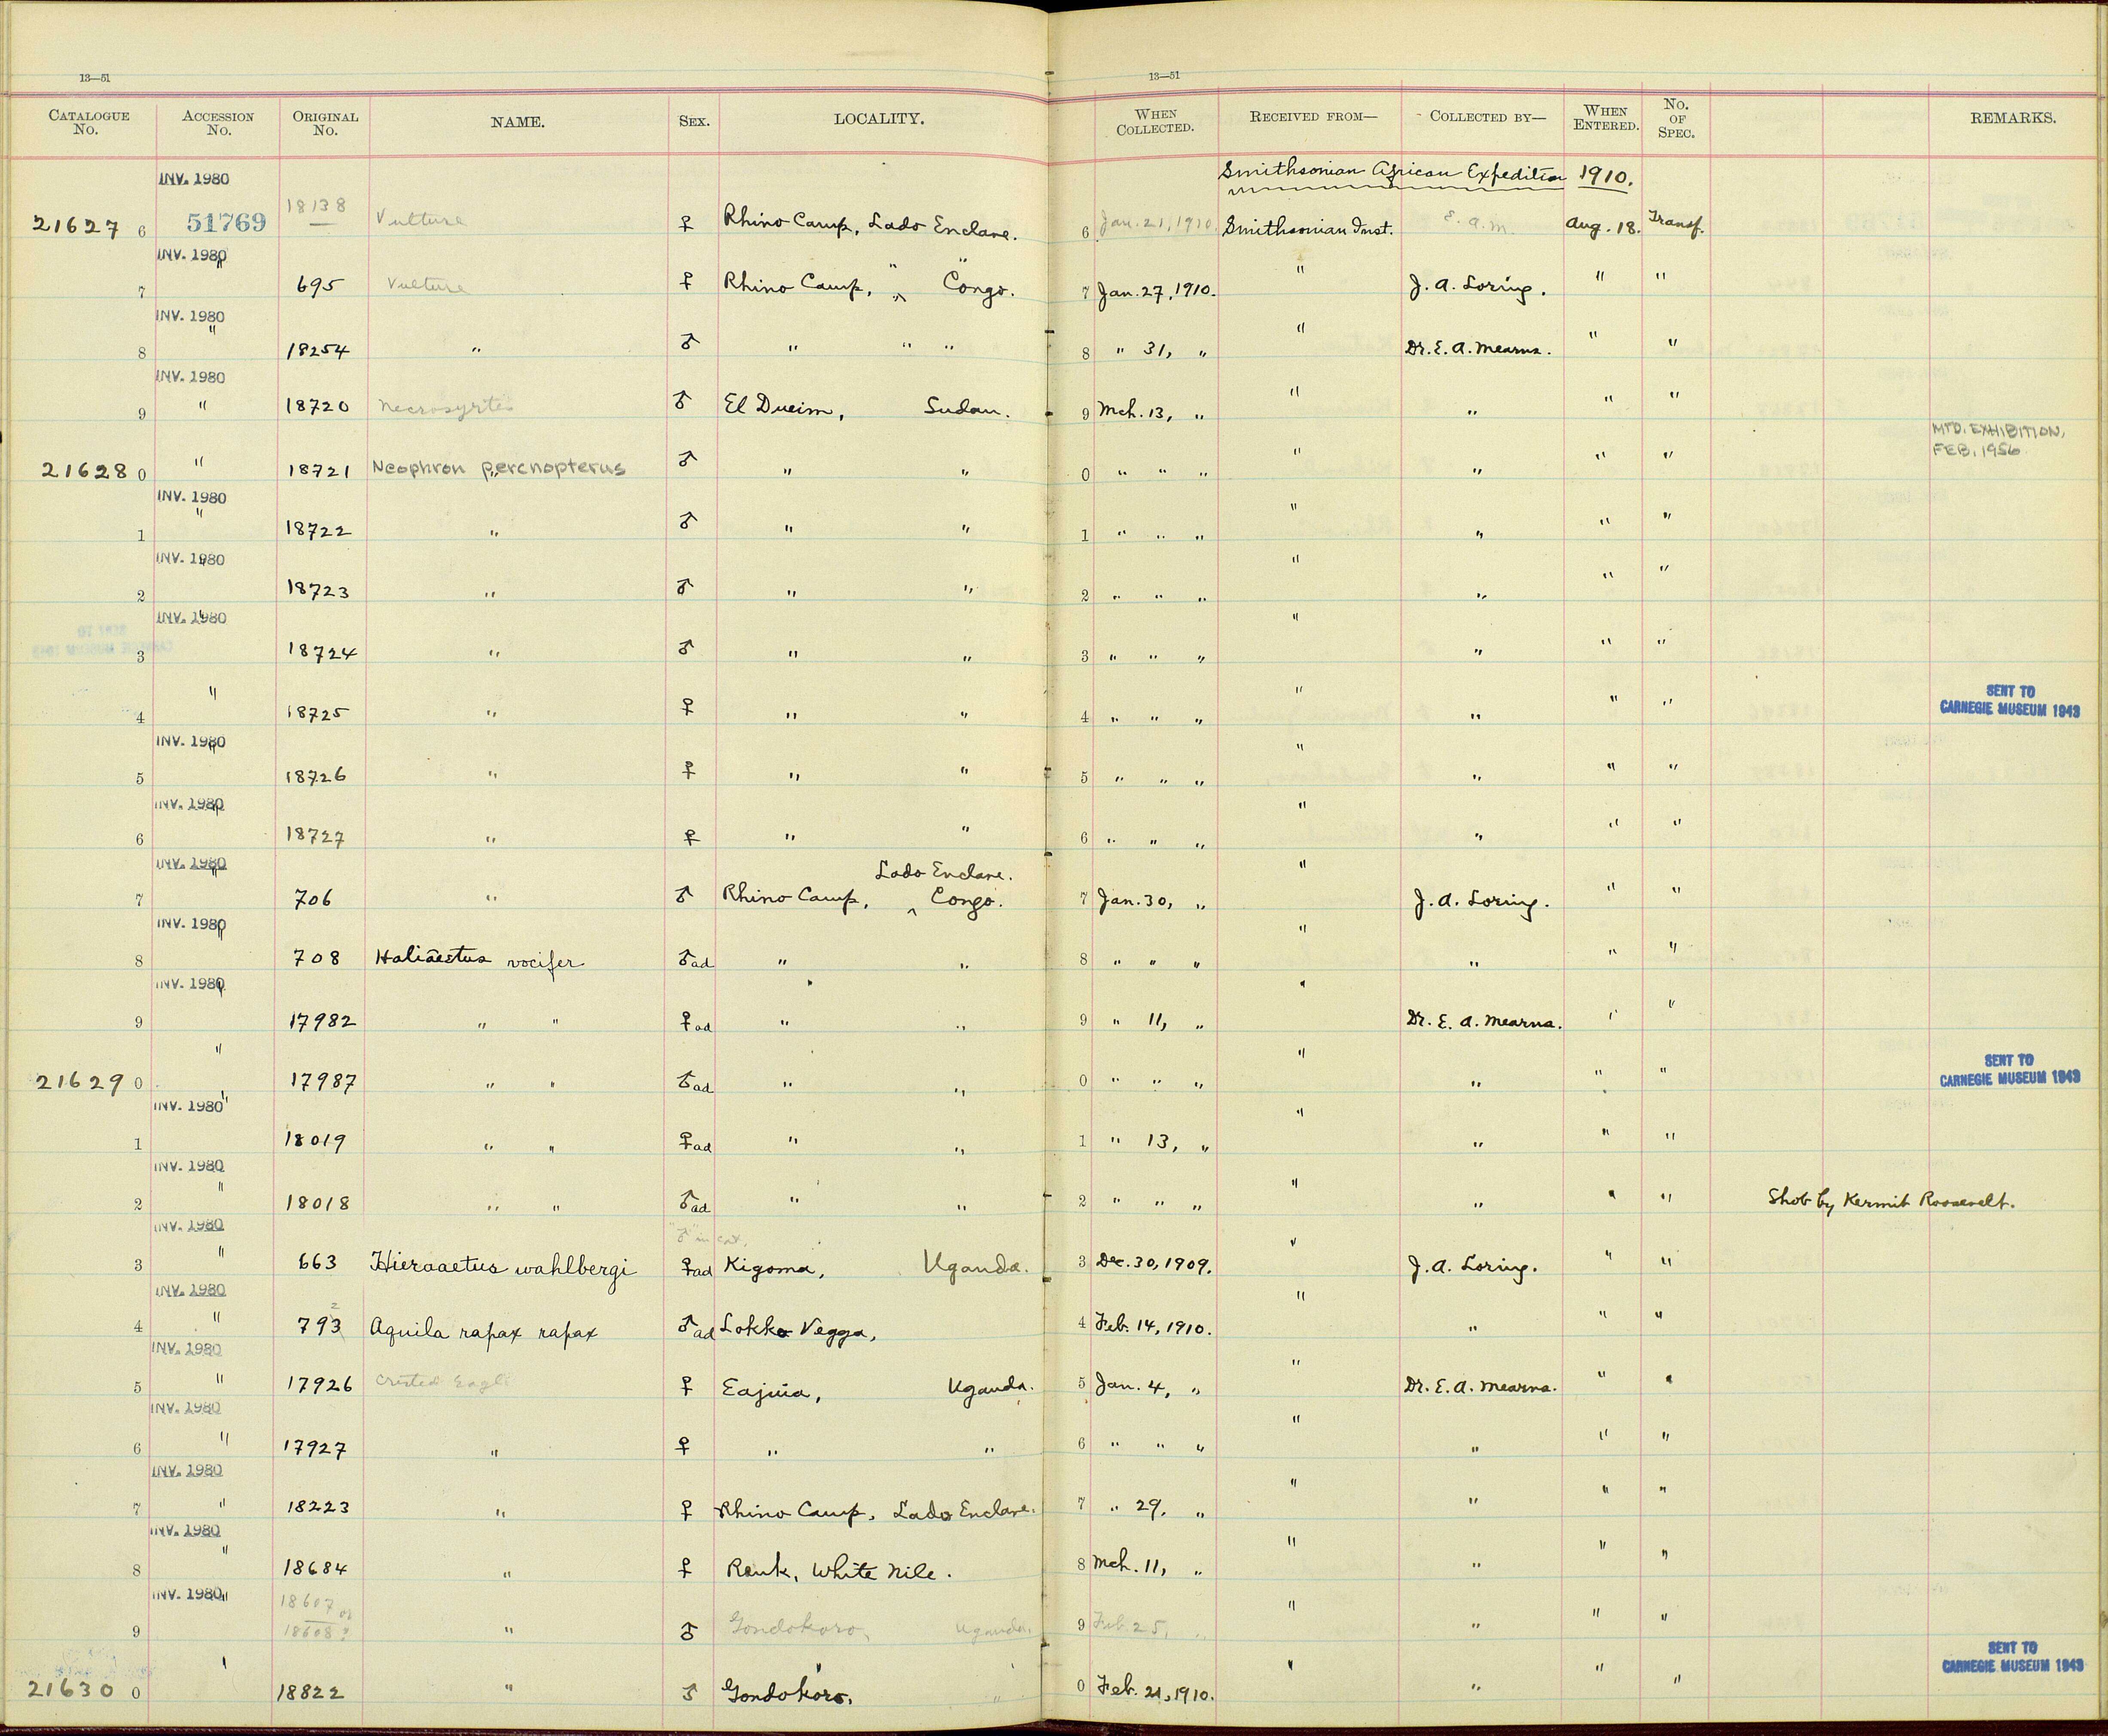 13—51 13—51
CATALOGUE No. ACCESSION No. ORIGINAL No. NAME. SEX. LOCALITY. WHEN COLLECTED. RECEIVED FROM— COLLECTED BY— WHEN ENTERED. No. OF SPEC. REMARKS.
Smithsonian African Expedition 1910.
INV. 1980
21627 6 51769 18138 Vulture ♀ Rhino Camp, Lado Enclave. 6 Jan. 21, 1910. Smithsonian Inst. E. A. M. Aug. 18. Transf.
INV. 1980
7 " 695 Vulture ♀ Rhino Camp, " ^ " Congo. 7 Jan. 27, 1910. " J. A. Loring. " "
INV. 1980
8 " 18254 " ♂ " " " 8 " 31, " " Dr. E. A. Mearns. " "
INV. 1980
9 " 18720 Necrosyrtes ♂ El Dueim, Sudan. 9 Mch. 13, " " " " "
MTD. EXHIBITION,
FEB, 1956
21628 0 " 18721 Neophron percnopterus ♂ " " 0 " " " " " " "
INV. 1980
1 " 18722 " ♂ " " 1 " " " " " " "
INV. 1980
2 " 18723 " ♂ " " 2 " " " " " " "
INV. 1980
3 " 18724 " ♂ " " 3 " " " " " " "
4 " 18725 " ♀ " " 4 " " " " " " " SENT TO
CARNEGIE MUSEUM 1943
INV. 1980
5 " 18726 " ♀ " " 5 " " " " " " "
INV. 1980
6 " 18727 " ♀ " " 6 " " " " " " "
INV. 1980
Lado Enclave.
7 " 706 " ♂ Rhino Camp, ^ Congo. 7 Jan. 30, " " J. A. Loring. " "
INV. 1980
8 " 708 Haliaetus vocifer ♂ad " " 8 " " " " " " "
INV. 1980
9 " 17982 " " ♀ad " " 9 " 11, " " Dr. E. A. Mearns. " "
21629 0 " 17987 " " ♂ad " " 0 " " " " " " " SENT TO
CARNEGIE MUSEUM 1943
INV. 1980
1 " 18019 " " ♀ad " " 1 " 13, " " " " "
INV. 1980
2 " 18018 " " ♂ad " " 2 " " " " " " " Shot by Kermit Roosevelt.
INV. 1980
"♂" in cat.
3 " 663 Hieraaetus wahlbergi ♀ad Kigoma, Uganda. 3 Dec. 30, 1909. " J. A. Loring. " "
INV. 1980
2
4 " 793 Aquila rapax rapax ♂ad Lokko Vegga, 4 Feb. 14, 1910. " " " "
INV. 1980
5 " 17926 Crested Eagle ♀ Uganda. 5 Jan. 4, " " Dr. E. A. Mearns. " "
INV. 1980
6 " 17927 " ♀ " " 6 " " " " " " "
INV. 1980
7 " 18223 " ♀ Rhino Camp, Lado Enclave. 7 " 29, " " " " "
INV. 1980
8 " 18684 " ♀ Renk, White Nile. 8 Mch. 11, " " " " "
INV. 1980
18607 or
9 " 18608? " ♂ Gondokoro, Uganda. 9 Feb. 25, " " " " "
21630 0 " 18822 " ♂ Gondokoro. " 0 Feb. 21, 1910. " " " " SENT TO
CARNEGIE MUSEUM 1943